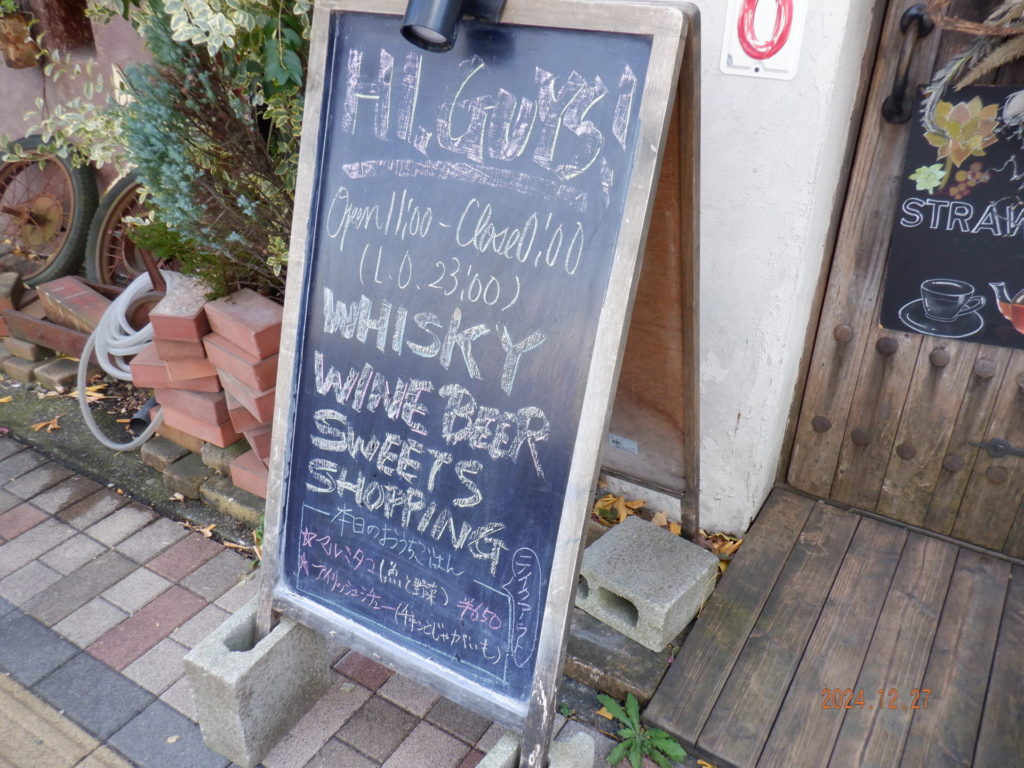 HI, GUYS!
Open 11:00 - Close 0:00
(L.O. 23:00)
WHISKY
WINE BEER
SWEETS
SHOPPING
本日のおうちごはん
★マルミタコ(魚と野菜) ¥650
★アイリッシュシチュー(チキンとじゃがいも)
テイクアウト
STRAW
2024.12.27